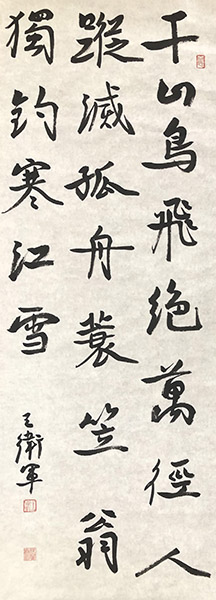 千山鳥飛絶萬徑人
蹤滅孤舟蓑笠翁
獨釣寒江雪
王衛軍